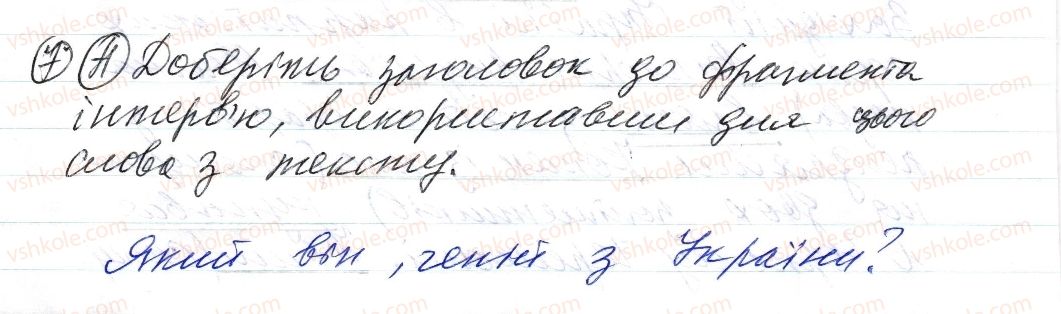 7 А Доберіть заголовок до фрагмента
інтерв'ю, використавши для цього
слова з тексту.
Який він, геній з України?